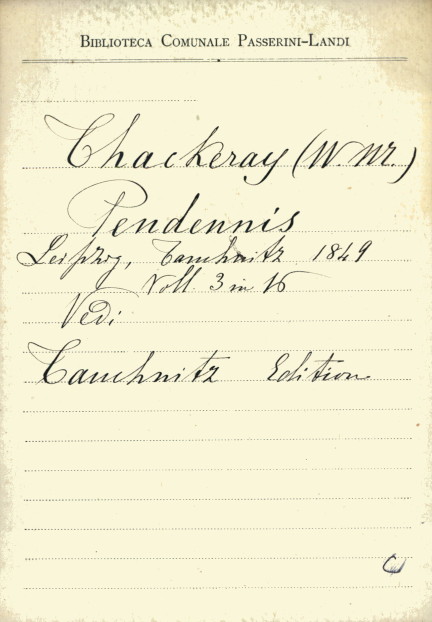 BIBLIOTECA COMUNALE PASSERINI-LANDI
Thackeray (W. M.)
Pendennis
Leipzig, Tauchnitz 1849
Voll. 3 in 16
Vedi
Tauchnitz Edition